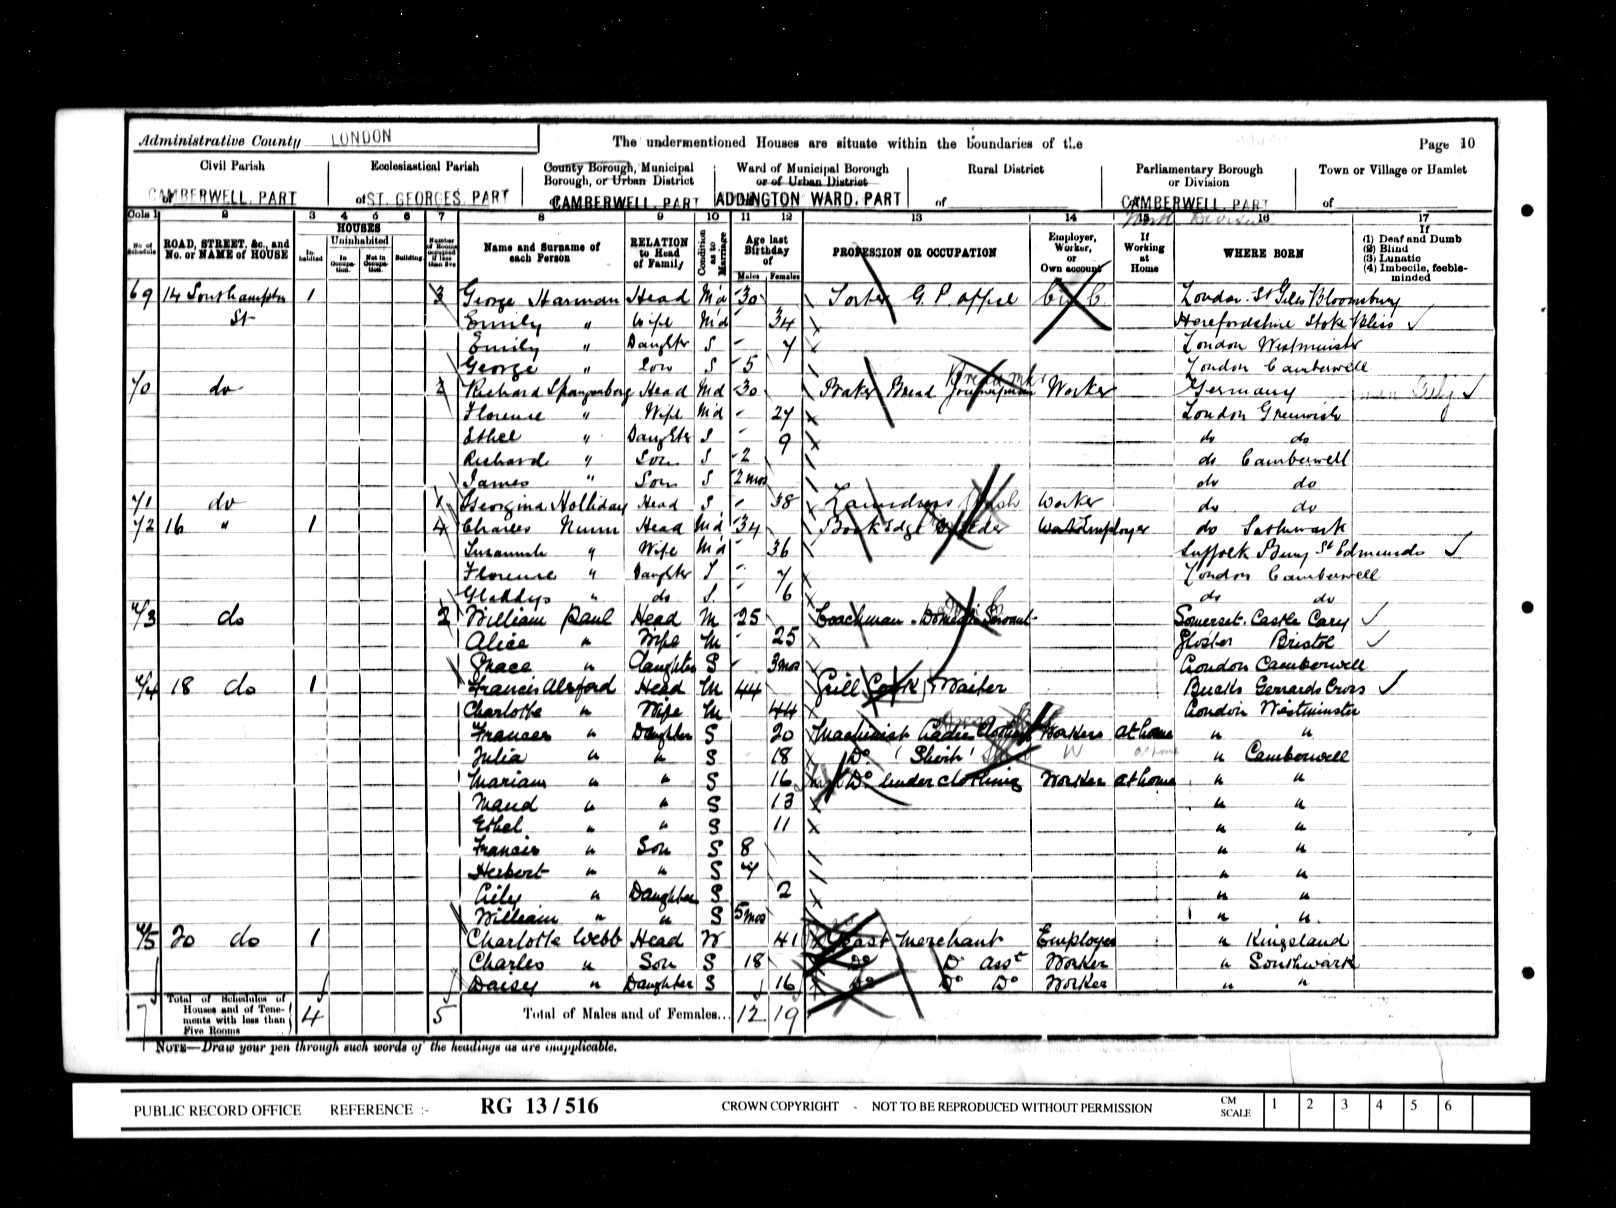 Administrative County LONDON
The undermentioned Houses are situate within the boundaries of the
Page 10
Civil Parish
of CAMBERWELL, PART
Ecclesiastical Parish
of ST. GEORGES, PART
County Borough, Municipal Borough, or Urban District
CAMBERWELL, PART
Ward of Municipal Borough or of Urban District
ADDINGTON WARD, PART
Rural District
of
Parliamentary Borough or Division
CAMBERWELL, PART
North Division
Town or Village or Hamlet
of
Cols 1 2 3 4 5 6 7 8 9 10 11 12 13 14 15 16 17
No. of Schedule
ROAD, STREET, &c., and No. or NAME of HOUSE
HOUSES
Inhabited
Uninhabited
In Occupation.
Not in Occupation.
Building
Number of Rooms occupied if less than five
Name and Surname of each Person
RELATION to Head of Family
Condition as to Marriage
Age last Birthday of
Males Females
PROFESSION OR OCCUPATION
Employer, Worker, or Own account
If Working at Home
WHERE BORN
If
(1) Deaf and Dumb
(2) Blind
(3) Lunatic
(4) Imbecile, feeble-minded
69 14 Southampton St 1 3 George Harman Head Md 30 Porter G.P. office London St Giles Bloomsbury
Emily " Wife Md 34 Herefordshire Stoke Bliss
Emily " Daughter S 7 London Westminster
George " Son S 5 London Camberwell
70 do 2 Richard Spangenberg Head Md 30 Baker Bread Journeyman Worker Germany
Florence " Wife Md 27 London Greenwich
Ethel " Daughter S 9 do do
Richard " Son S 2 do Camberwell
James " Son S 2 mos do do
71 do 1 Georgina Holliday Head S 38 Laundress Worker do do
72 16 " 1 4 Charles Nunn Head Md 34 Book Edge Employer do Sothwark
Susannah " Wife Md 36 Suffolk Bury St Edmunds
Florence " Daughter S 7 London Camberwell
Gladdys " do S 6 do do
73 do 2 William Paul Head M 25 Coachman - Domestic Servant Somerset. Castle Cary
Alice " Wife M 25 Gloster Bristol
Grace " daughter S 3 mos London Camberwell
74 18 do 1 Francis Alsford Head M 44 Grill Cook Waiter Bucks Gerrards Cross
Charlotte " Wife M 44 London Westminster
Frances " Daughter S 20 Machinist Ladies Clothing Worker at home " "
Julia " " S 18 Do " Camberwell
Mariam " " S 16 Do underclothing Worker at home " "
Maud " " S 13 " "
Ethel " " S 11 " "
Francis " Son S 8 " "
Herbert " " S 7 " "
Lily " Daughter S 2 " "
William " " S 5 mos " "
75 20 do 1 Charlotte Webb Head W 41 Yeast Merchant Employer " Kingsland
Charles " Son S 18 Do Do Asst Worker " Southwark
Daisy " Daughter S 16 Do Do Do Worker " "
7 Total of Schedules of Houses and of Tenements with less than Five Rooms 4 5 Total of Males and of Females... 12 19
NOTE—Draw your pen through such words of the headings as are inapplicable.
PUBLIC RECORD OFFICE REFERENCE :- RG 13/516 CROWN COPYRIGHT - NOT TO BE REPRODUCED WITHOUT PERMISSION CM SCALE 1 2 3 4 5 6